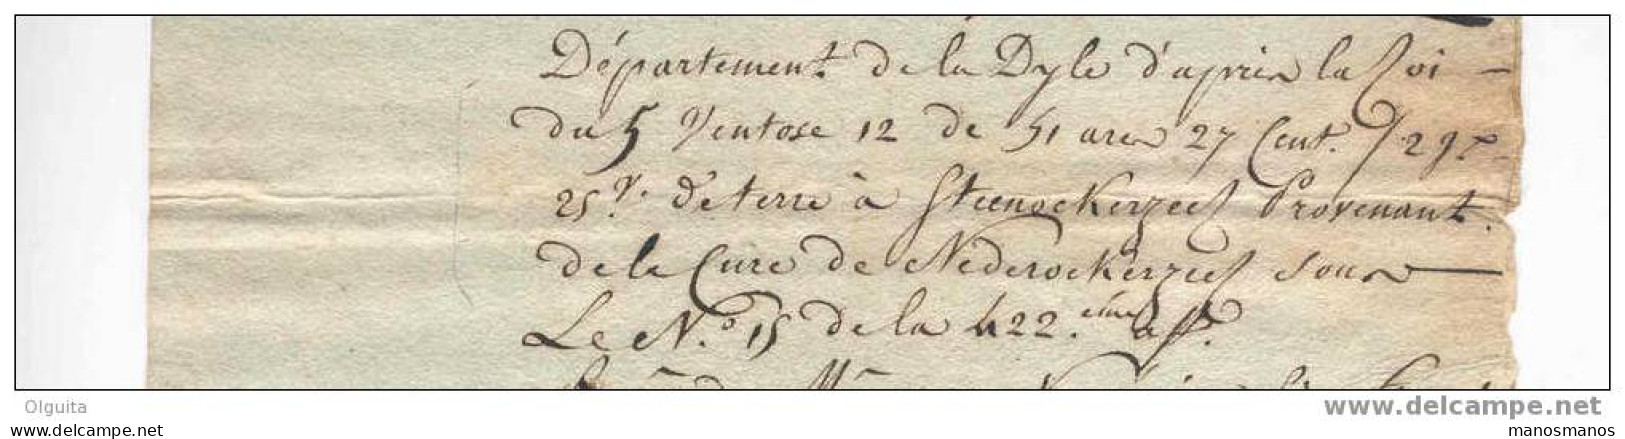 Département de la Dyle d'après la Loi —
du 5 Ventose 12 de 51 ares 27 Cent.
25 v. de terre à Steenockerzeel Provenant
de la Cure de Nederockerzeel sous —
Le N.o 15 de la 422.eme aff.
Olguita
www.delcampe.net
www.delcampe.com
manosmanos